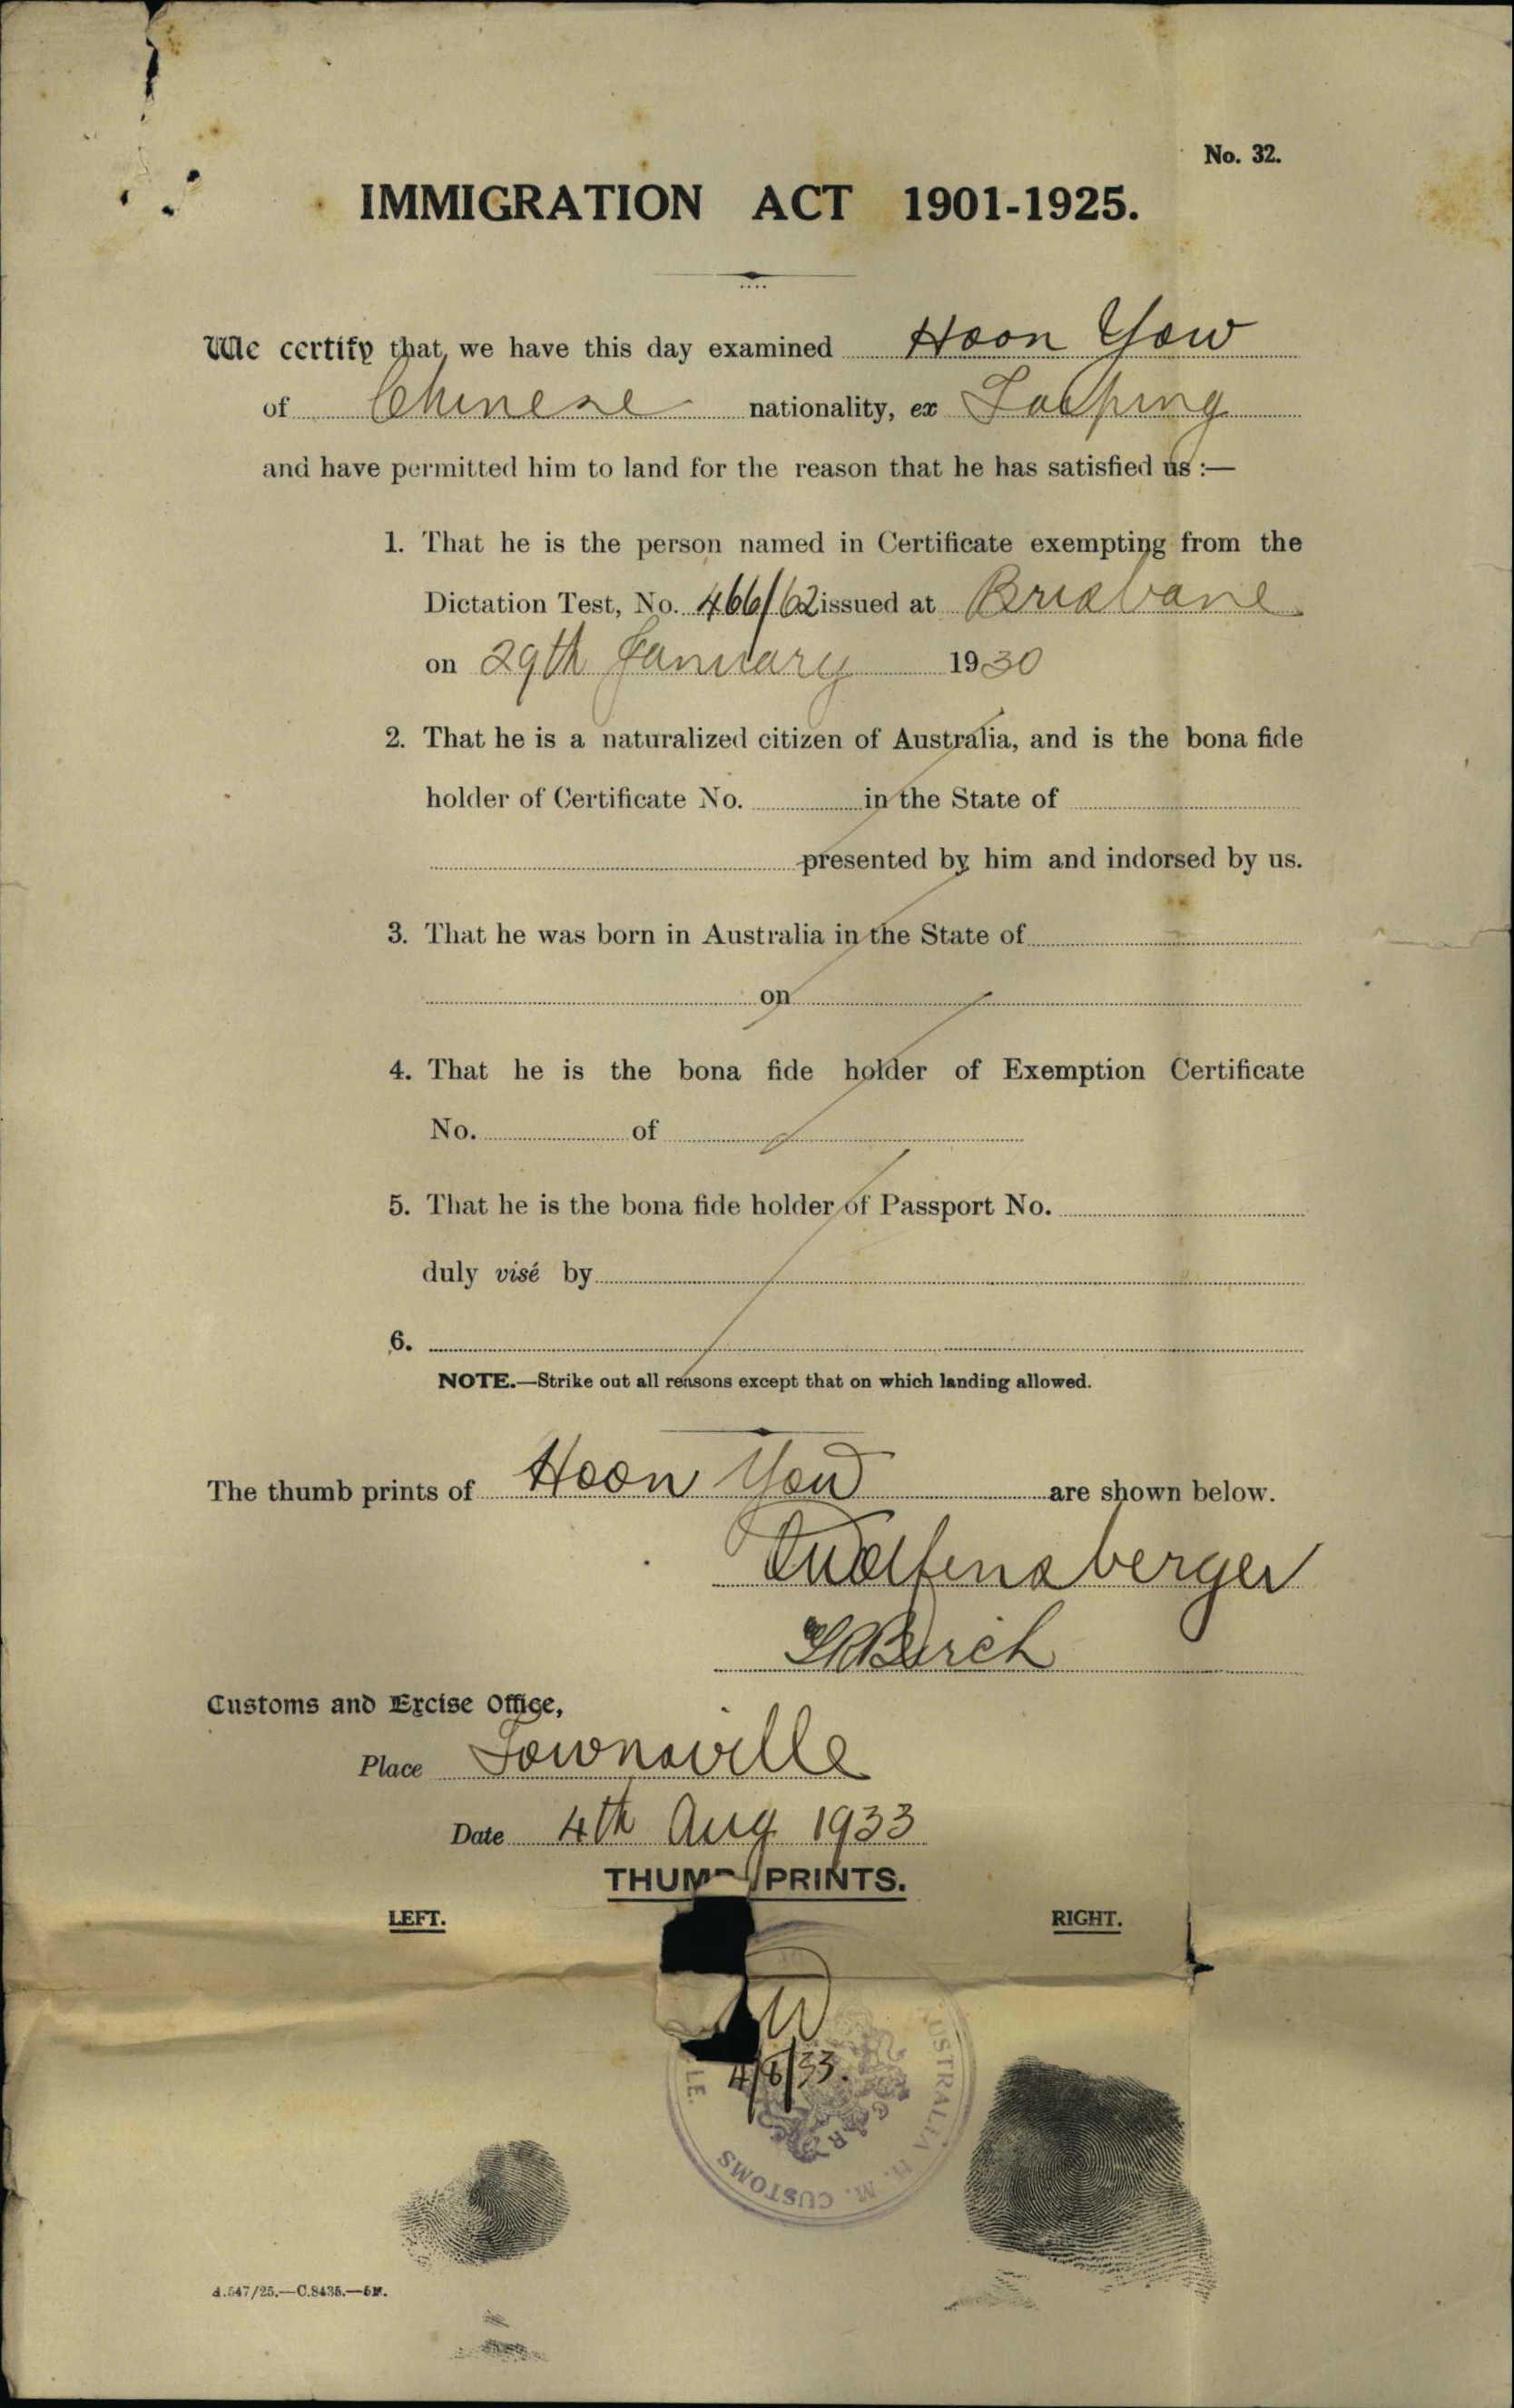 No. 32.
IMMIGRATION ACT 1901-1925.
We certify that we have this day examined Hoon Yow
of Chinese nationality, ex Taiping
and have permitted him to land for the reason that he has satisfied us :—
1. That he is the person named in Certificate exempting from the
Dictation Test, No. 466/62 issued at Brisbane
on 29th January 1930
2. That he is a naturalized citizen of Australia, and is the bona fide
holder of Certificate No. in the State of
presented by him and indorsed by us.
3. That he was born in Australia in the State of
on
4. That he is the bona fide holder of Exemption Certificate
No. of
5. That he is the bona fide holder of Passport No.
duly visé by
6.
NOTE.—Strike out all reasons except that on which landing allowed.
The thumb prints of Hoon Yow are shown below.
Wolfensberger
Birch
Customs and Excise Office,
Place Townsville
Date 4th Aug 1933
THUMB PRINTS.
LEFT. RIGHT.
4/8/33.
AUSTRALIA H. M. CUSTOMS
A.547/25.—C.8435.—5M.